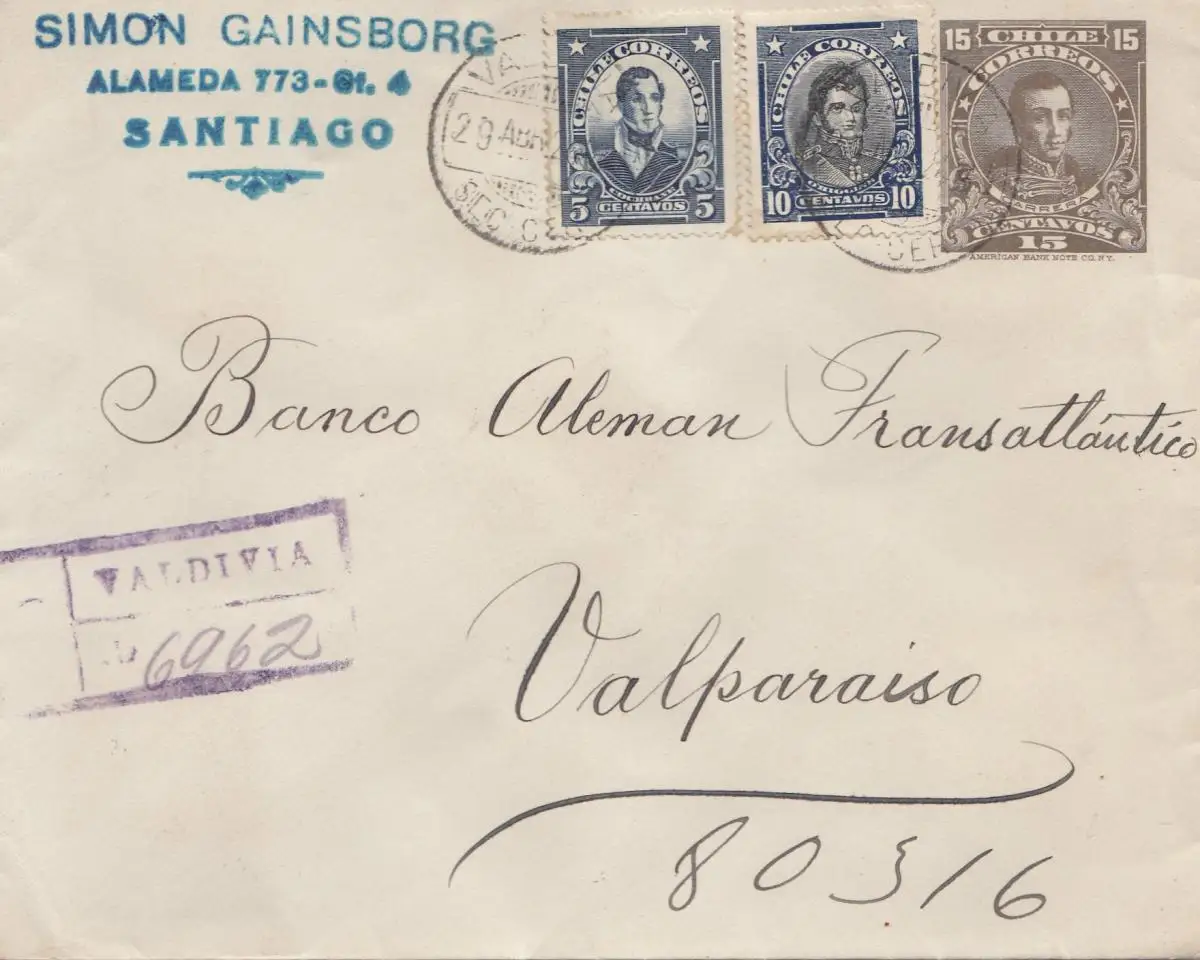 SIMON GAINSBORG
ALAMEDA 773-Gt. 4
SANTIAGO
CHILE CORREOS
5 CENTAVOS 5
CHILE CORREOS
10 CENTAVOS 10
15 CHILE 15
CORREOS
CARRERA
CENTAVOS
15
AMERICAN BANK NOTE CO. N.Y.
29 ABR
SEC. CE
Banco Aleman Transatlántico
VALDIVIA
6962
Valparaiso
80316